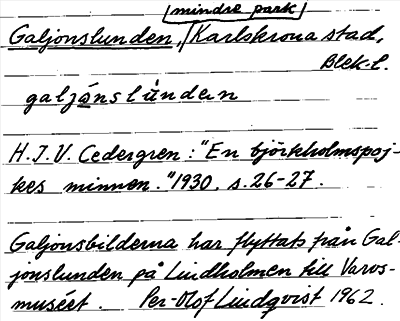 mindre park
Galjonslunden, Karlskrona stad,
Blek.l.
galjånslùnden
H.J.V. Cedergren: "En björkholmspoj-
kes minnen." 1930, s. 26-27.
Galjonsbilderna har flyttats från Gal-
jonslunden på Lindholmen till Varvs-
muséet. Per-Olof Lindqvist 1962.